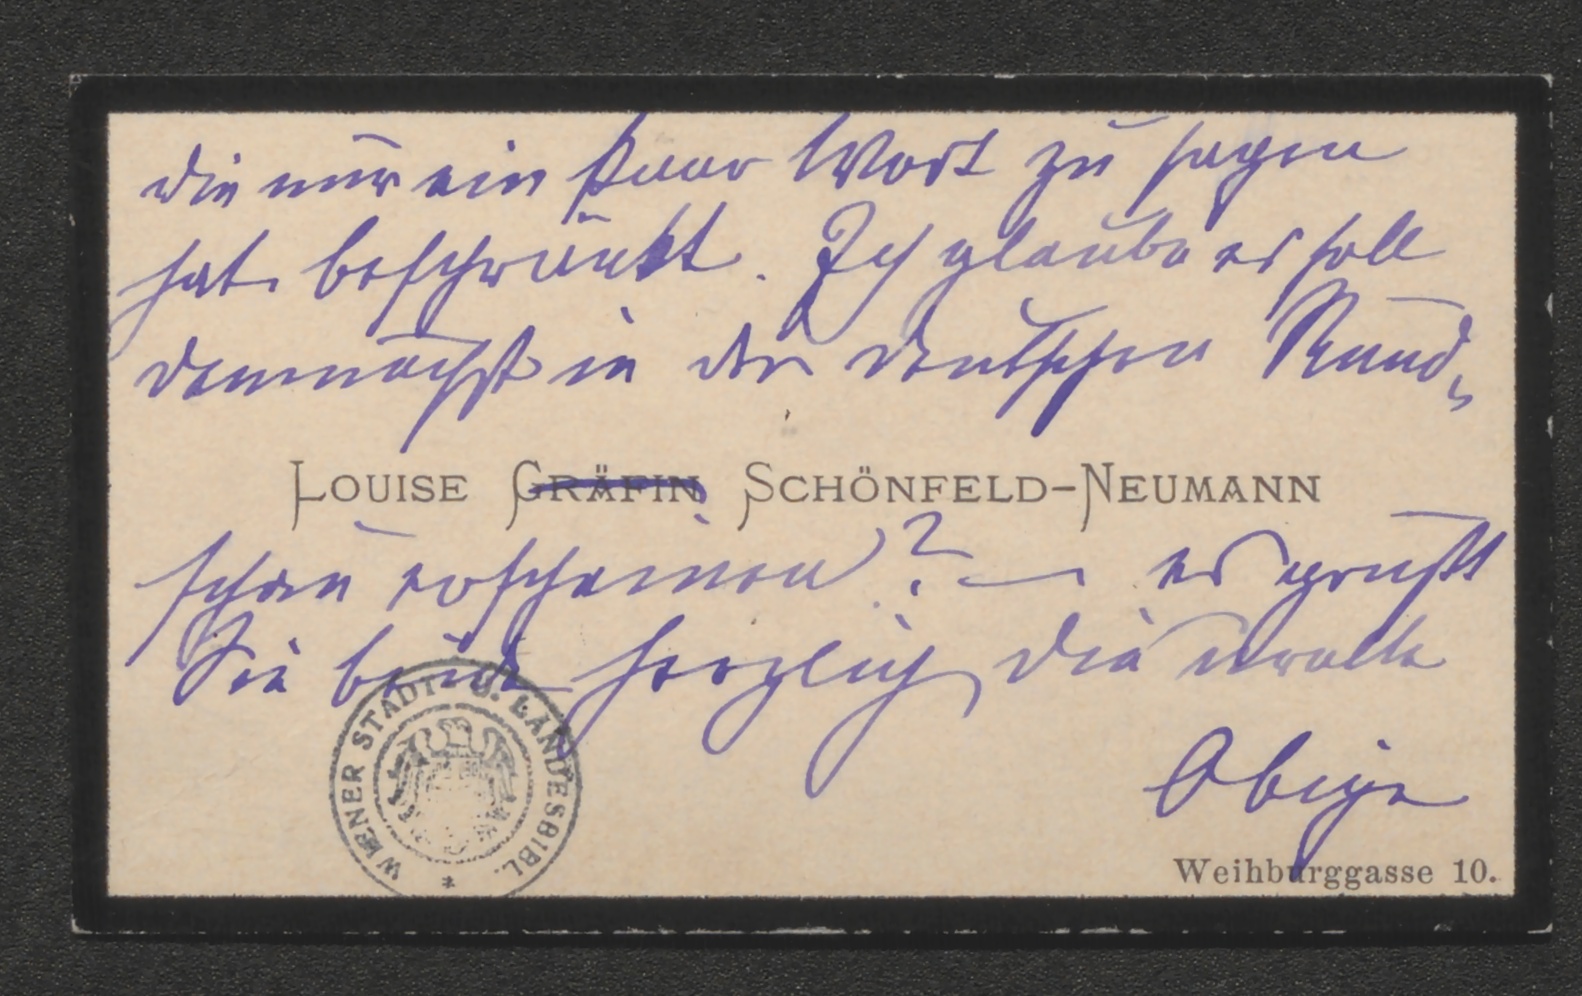 die nur ein paar Wort zu sagen
hat beschränkt. Ich glaube es soll
demnächst in der deutschen Rund-
LOUISE GRÄFIN SCHÖNFELD-NEUMANN
schau erscheinen? — es grüßt
Sie beide herzlich die uralte
Obige
WIENER STADT- U. LANDESBIBL.
Weihburggasse 10.